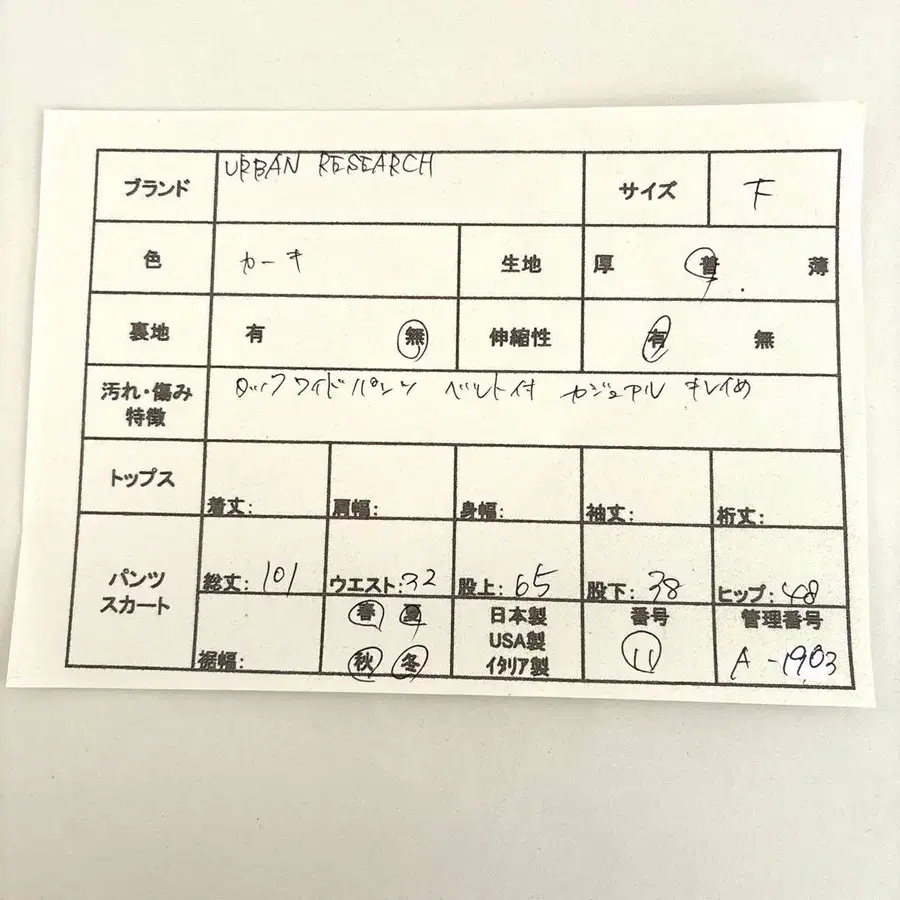 ブランド URBAN RESEARCH サイズ F
色 カーキ 生地 厚 普 薄
裏地 有 無 伸縮性 有 無
汚れ・傷み 特徴 タックワイドパンツ ベルト付 カジュアル キレイめ
トップス 着丈: 肩幅: 身幅: 袖丈: 裄丈:
パンツ スカート 総丈: 101 ウエスト: 32 股上: 65 股下: 38 ヒップ: 48
裾幅: 春 夏 日本製 番号 管理番号
USA製
秋 冬 イタリア製 11 A-1903